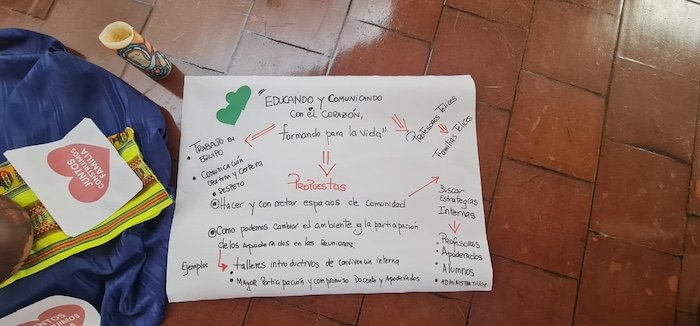 EDUCANDO Y COMUNICANDO
CON EL CORAZÓN,
"formando para la vida"
PROFESORES FELICES
FAMILIAS FELICES
• TRABAJO EN
EQUIPO
• COMUNICACIÓN
• RESPETO
PROPUESTAS
Hacer y concretar espacios de comunidad
Como podemos cambiar el ambiente y la participación
de los Apoderados en las Reuniones
Ejemplos
• talleres introductivos de convivencia interna
• Mayor Participación y compromiso Docente y Apoderados
Buscar
Estrategias
Internas
• Profesores
• Apoderados
• Alumnos
• ADMINISTRATIVOS
JUNTOS
CONSTRUIMOS
FAMILIA